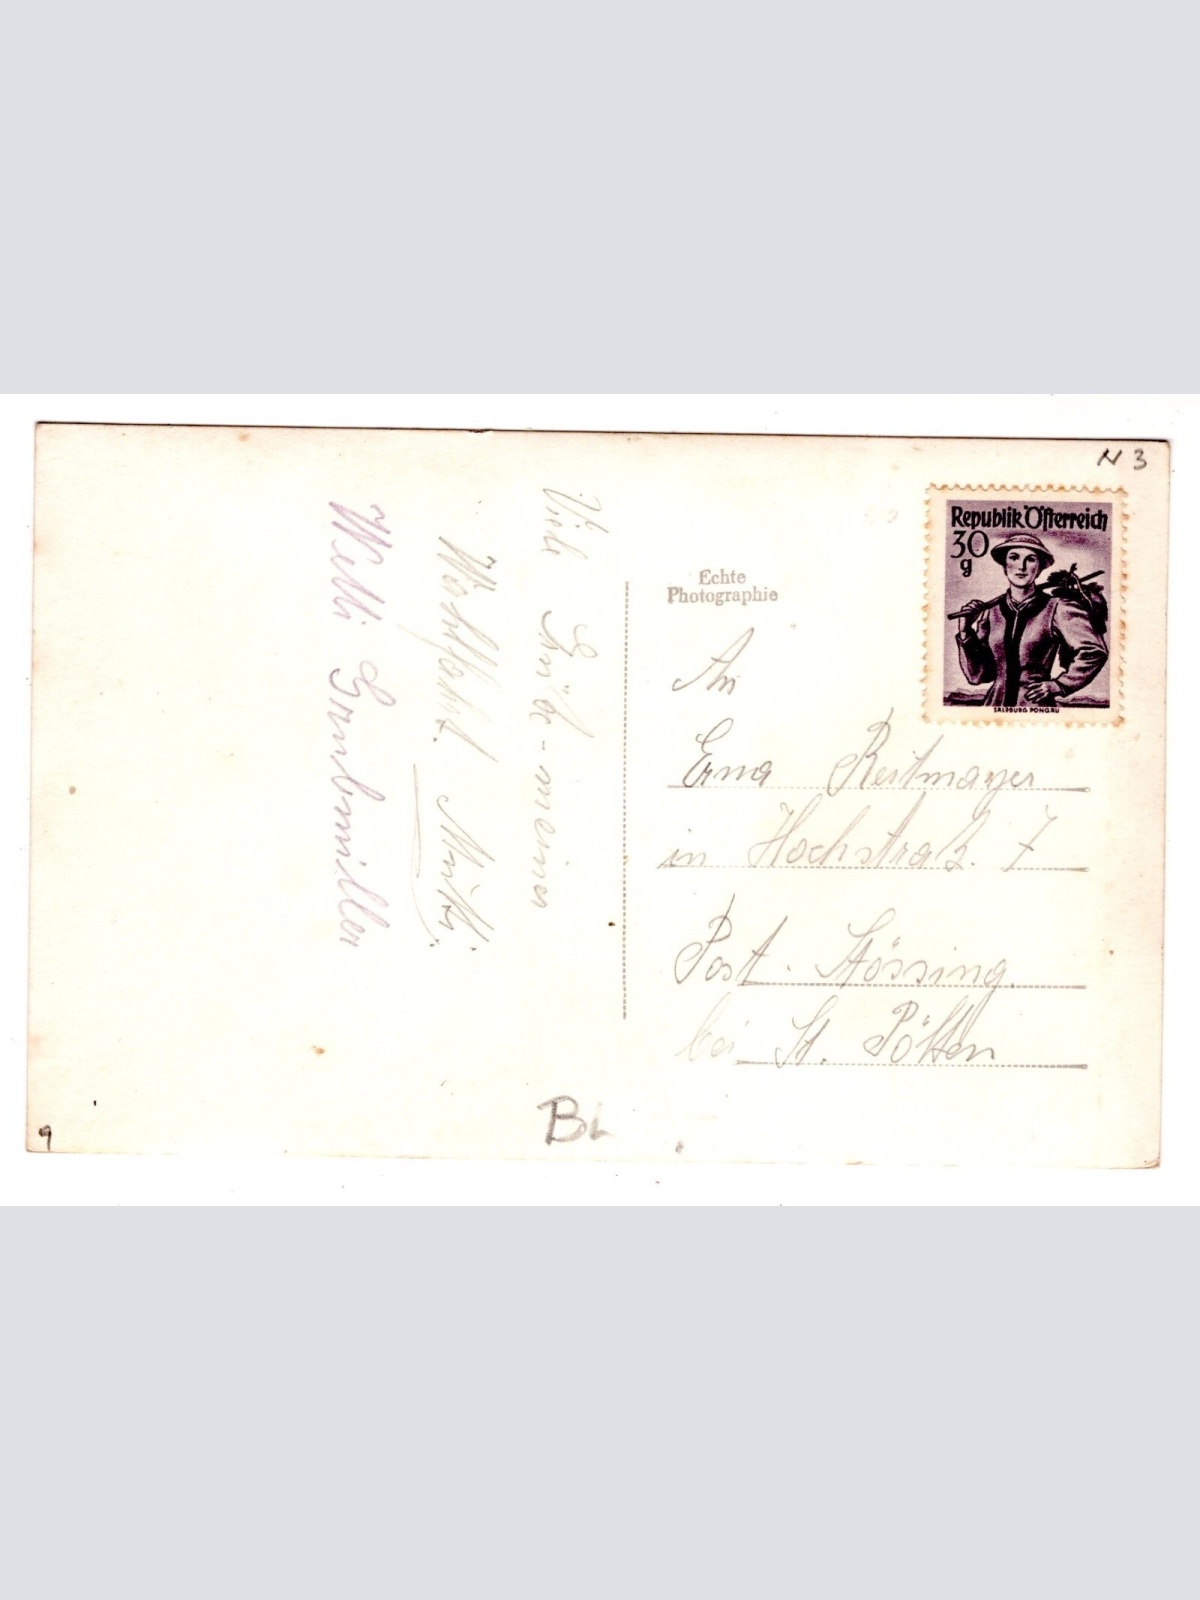 N 3
Republik Österreich
30
g
SALZBURG PONGAU
Echte
Photographie
An
Erna Reitmayer
in Hochstraß. 7
Post. Stössing.
bei St. Pölten
Viele Grüße - meiner
Wohlfahrt. Mitzi
Grubmüller
BL
9